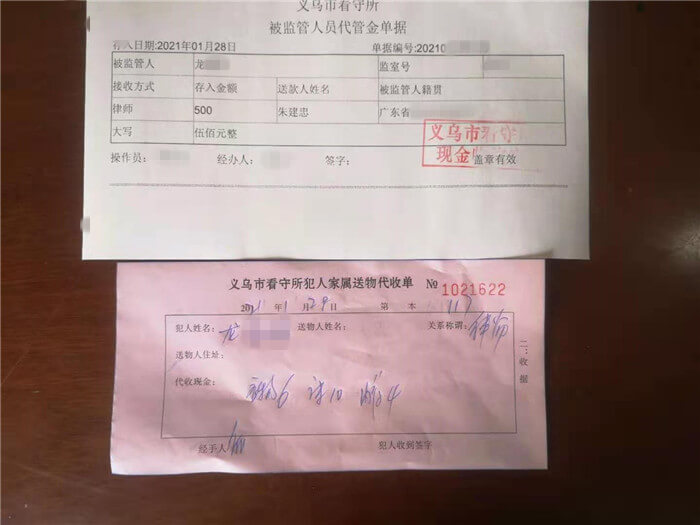 义乌市看守所
被监管人员代管金单据
存入日期:2021年01月28日 单据编号:20210
被监管人 龙 监室号
接收方式 存入金额 送款人姓名 被监管人籍贯
律师 500 朱建忠 广东省
大写 伍佰元整
义乌市看守
现金
操作员: 经办人: 签字: 盖章有效
义乌市看守所犯人家属送物代收单 № 1021622
2021年1月29日 第 本 117
犯人姓名: 龙 送物人姓名: 关系称谓:
送物人住址:
代收现金: 6 10 4
经手人 犯人收到签字
二:收据